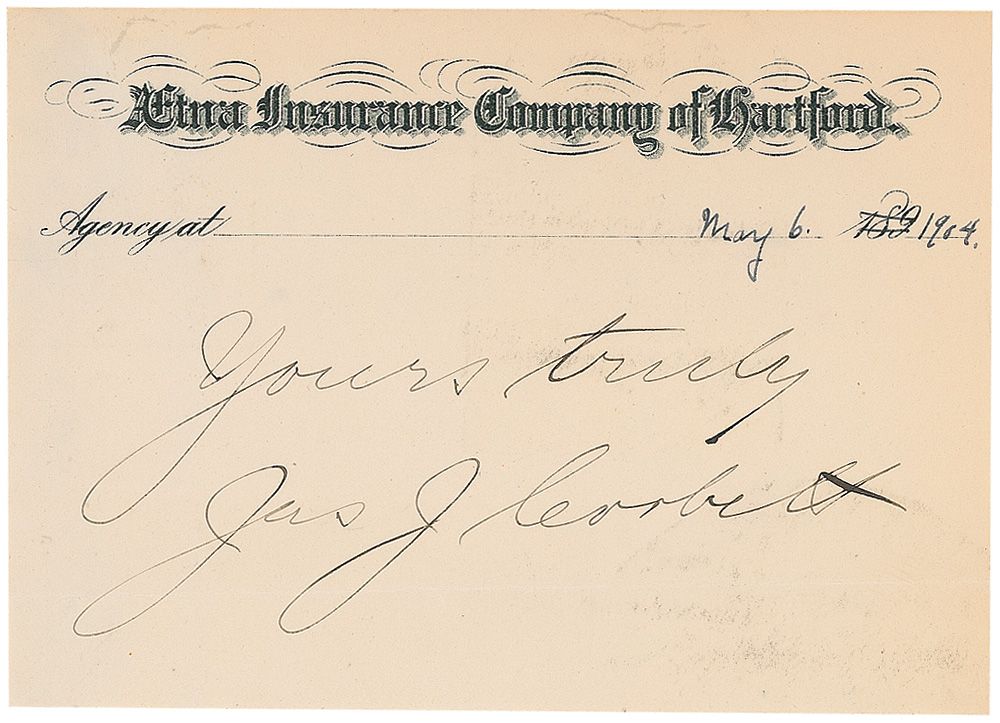 Ætna Insurance Company of Hartford.
Agency at May 6. 189 1904.
Yours truly
Jas J Corbett